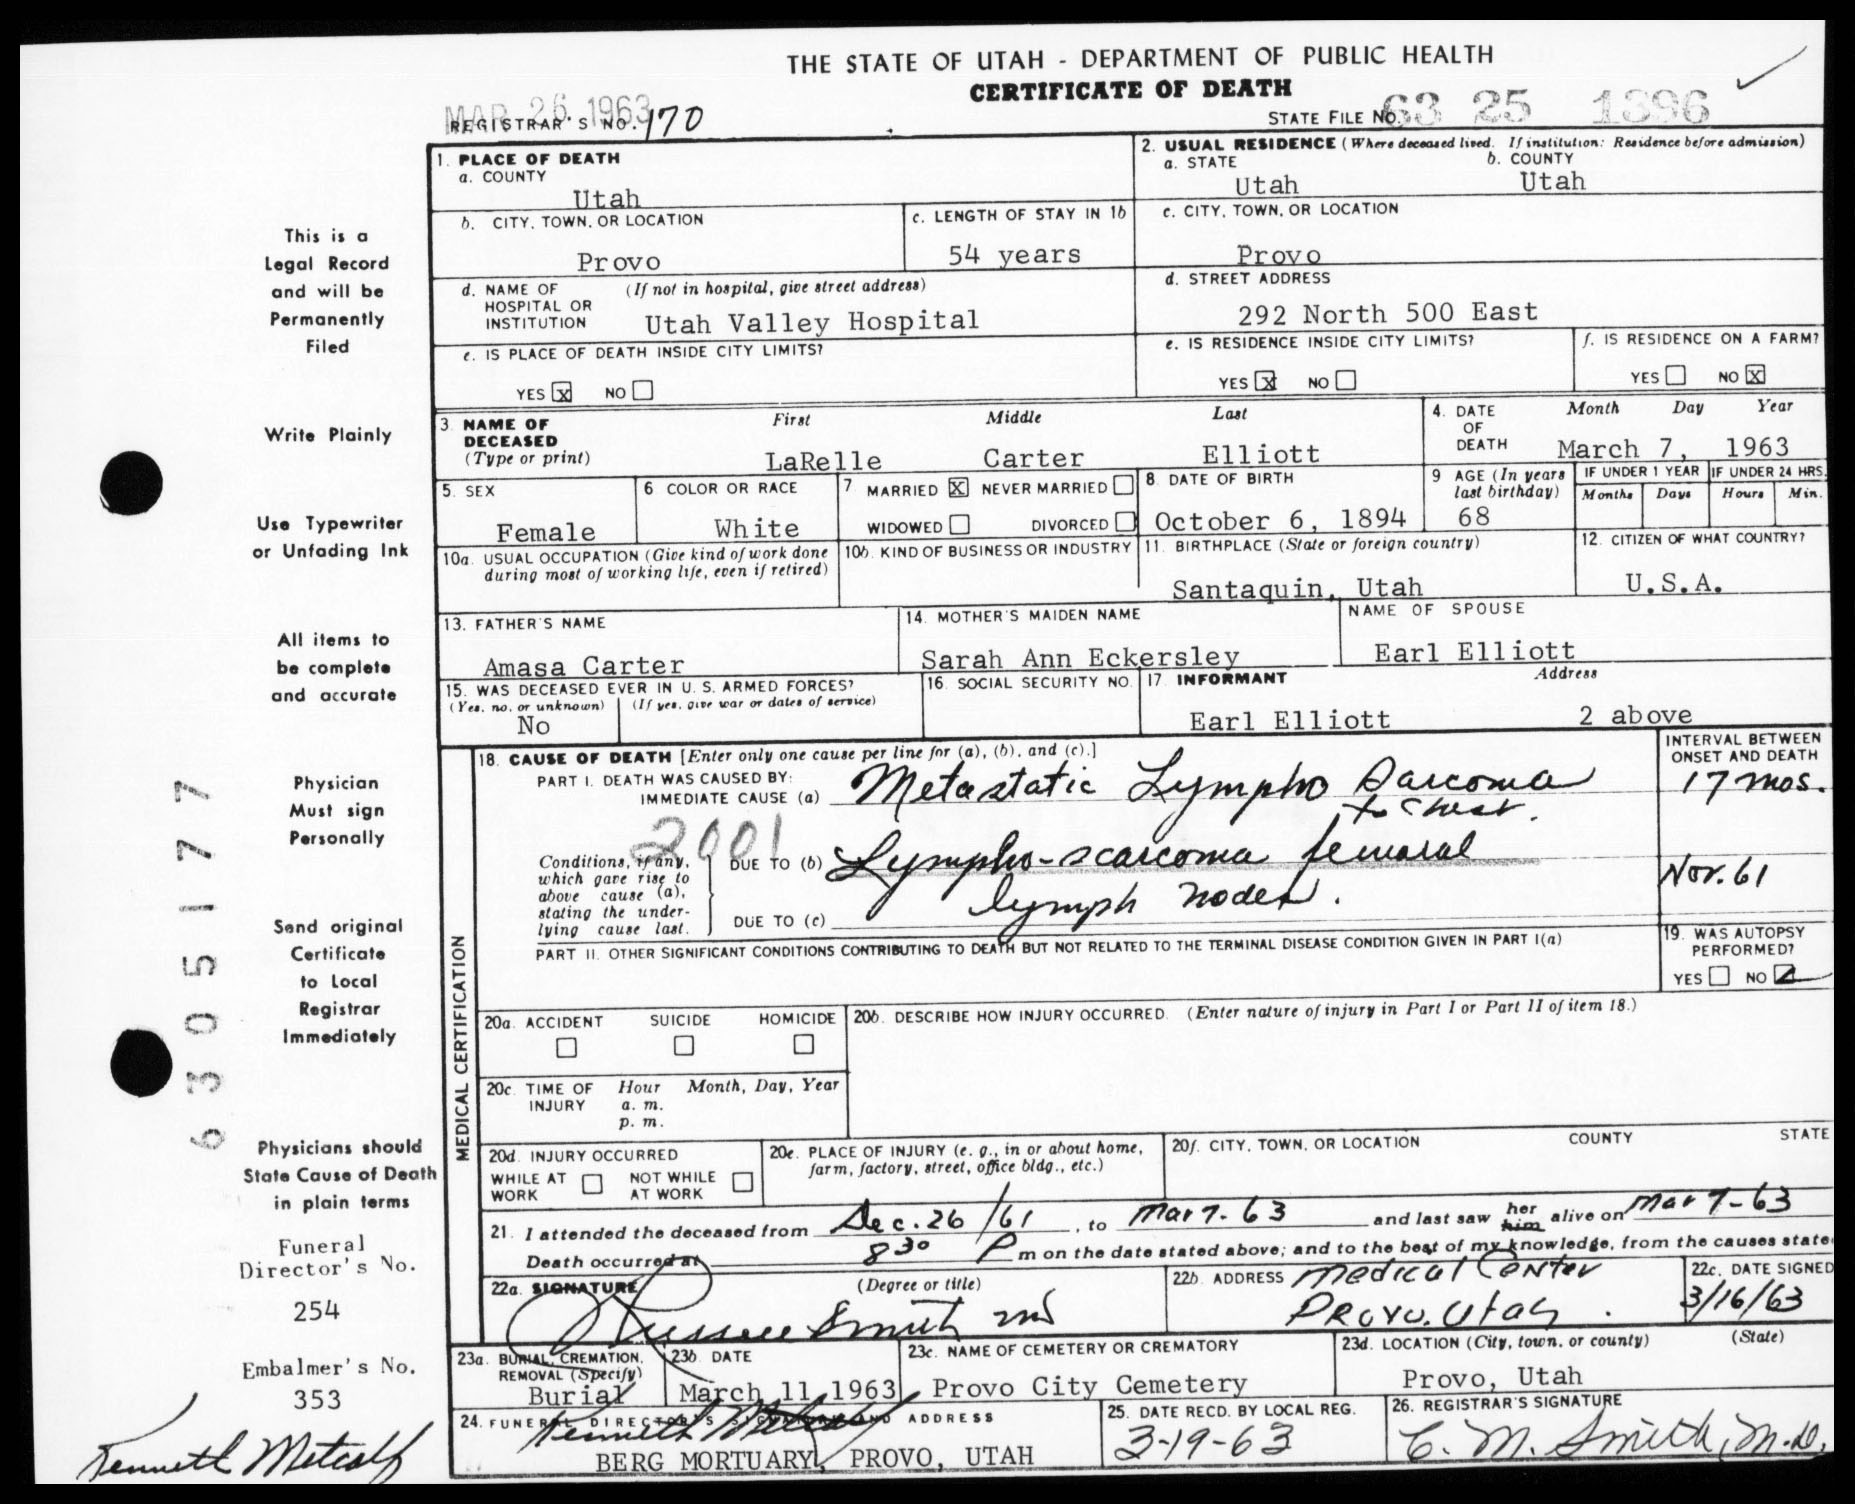 THE STATE OF UTAH - DEPARTMENT OF PUBLIC HEALTH
CERTIFICATE OF DEATH
MAR 26 1963
REGISTRAR'S NO. 170
STATE FILE NO. 63 25 1396
This is a
Legal Record
and will be
Permanently
Filed
Write Plainly
Use Typewriter
or Unfading Ink
All items to
be complete
and accurate
Physician
Must sign
Personally
Send original
Certificate
to Local
Registrar
Immediately
Physicians should
State Cause of Death
in plain terms
Funeral
Director's No.
254
Embalmer's No.
353
Kenneth Metcalf
6305177
1. PLACE OF DEATH
a. COUNTY
Utah
2. USUAL RESIDENCE (Where deceased lived. If institution: Residence before admission)
a. STATE b. COUNTY
Utah Utah
b. CITY, TOWN, OR LOCATION
Provo
c. LENGTH OF STAY IN 1b
54 years
c. CITY, TOWN, OR LOCATION
Provo
d. NAME OF (If not in hospital, give street address)
HOSPITAL OR
INSTITUTION Utah Valley Hospital
d. STREET ADDRESS
292 North 500 East
e. IS PLACE OF DEATH INSIDE CITY LIMITS?
YES X NO
e. IS RESIDENCE INSIDE CITY LIMITS?
YES X NO
f. IS RESIDENCE ON A FARM?
YES NO X
3. NAME OF First Middle Last
DECEASED
(Type or print) LaRelle Carter Elliott
4. DATE Month Day Year
OF
DEATH March 7, 1963
5. SEX
Female
6 COLOR OR RACE
White
7 MARRIED X NEVER MARRIED
WIDOWED DIVORCED
8. DATE OF BIRTH
October 6, 1894
9 AGE (In years
last birthday)
68
IF UNDER 1 YEAR IF UNDER 24 HRS.
Months Days Hours Min.
10a. USUAL OCCUPATION (Give kind of work done
during most of working life, even if retired)
10b. KIND OF BUSINESS OR INDUSTRY
11. BIRTHPLACE (State or foreign country)
Santaquin, Utah
12. CITIZEN OF WHAT COUNTRY?
U.S.A.
13. FATHER'S NAME
Amasa Carter
14. MOTHER'S MAIDEN NAME
Sarah Ann Eckersley
NAME OF SPOUSE
Earl Elliott
15. WAS DECEASED EVER IN U. S. ARMED FORCES?
(Yes, no, or unknown) (If yes, give war or dates of service)
No
16. SOCIAL SECURITY NO.
17. INFORMANT Address
Earl Elliott 2 above
MEDICAL CERTIFICATION
18. CAUSE OF DEATH [Enter only one cause per line for (a), (b), and (c).]
PART I. DEATH WAS CAUSED BY:
IMMEDIATE CAUSE (a) Metastatic Lympho Sarcoma
to Chest.
INTERVAL BETWEEN
ONSET AND DEATH
17 mos.
2001
Conditions, if any,
which gave rise to
above cause (a),
stating the under-
lying cause last.
DUE TO (b) Lympho-scarcoma femoral
lymph nodes.
Nov. 61
DUE TO (c)
PART II. OTHER SIGNIFICANT CONDITIONS CONTRIBUTING TO DEATH BUT NOT RELATED TO THE TERMINAL DISEASE CONDITION GIVEN IN PART I(a)
19. WAS AUTOPSY
PERFORMED?
YES NO
20a. ACCIDENT SUICIDE HOMICIDE
20b. DESCRIBE HOW INJURY OCCURRED. (Enter nature of injury in Part I or Part II of item 18.)
20c. TIME OF Hour Month, Day, Year
INJURY a. m.
p. m.
20d. INJURY OCCURRED
WHILE AT NOT WHILE
WORK AT WORK
20e. PLACE OF INJURY (e. g., in or about home,
farm, factory, street, office bldg., etc.)
20f. CITY, TOWN, OR LOCATION COUNTY STATE
21. I attended the deceased from Dec. 26/61, to Mar 7-63 and last saw her him alive on Mar 7-63
Death occurred at 8 30 P m on the date stated above; and to the best of my knowledge, from the causes state
22a. SIGNATURE (Degree or title)
Russell Smith MD
22b. ADDRESS Medical Center
Provo. Utah.
22c. DATE SIGNED
3/16/63
23a. BURIAL, CREMATION,
REMOVAL (Specify)
Burial
23b. DATE
March 11, 1963
23c. NAME OF CEMETERY OR CREMATORY
Provo City Cemetery
23d. LOCATION (City, town, or county) (State)
Provo, Utah
24. FUNERAL DIRECTOR'S SIGNATURE AND ADDRESS
Kenneth Metcalf
BERG MORTUARY, PROVO, UTAH
25. DATE RECD. BY LOCAL REG.
3-19-63
26. REGISTRAR'S SIGNATURE
C. M. Smith, M.D.